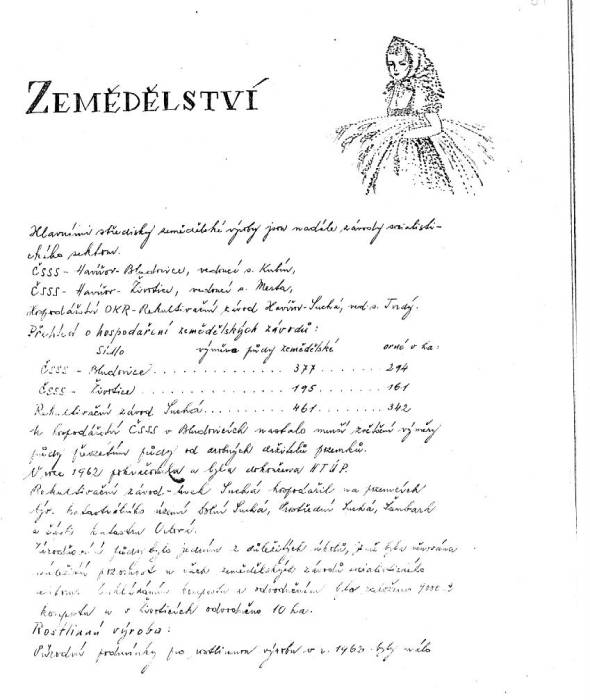 ZEMĚDĚLSTVÍ
Hlavními středisky zemědělské výroby jsou nadále závody socialisti-
ckého sektoru.
ČSSS - Havířov-Bludovice, vedoucí s. Kubín,
ČSSS - Havířov - Životice, vedoucí s. Mesta,
Hospodářství OKR-Rekultivační závod Havířov-Suchá, ved. s. Tvrdý.
Přehled o hospodaření zemědělských závodů:
Sídlo výměra půdy zemědělské orné v ha:
ČSSS - Bludovice . . . . . . . . . . . . . . . . 377 . . . . . . . 294
ČSSS - Životice . . . . . . . . . . . . . . . . . 195 . . . . . . . 161
Rekultivační závod Suchá . . . . . . . . . . 461 . . . . . . . . 342
hospodářství ČSSS v Bludovicích nastalo menší zvětšení výměry
půdy převzetím půdy od drobných držitelů pozemků.
V roce 1962 pokračovala a byla dokončena HTÚP.
Rekultivační závod Suchá hospodařil na pozemcích
býv. katastrálního území Dolní Suchá, Prostřední Suchá, Šumbark
a části katastru Orlová.
půdy bylo jedním z důležitých úkolů, jež byla věnována
náležitá pozornost u všech zemědělských závodů socialistického
kompostu a odvodněním bylo založeno
kompostu a v Životicích odvodněno 10 ha.
Rostlinná výroba:
Přírodní podmínky pro rostlinnou výrobu v r. 1962 byly málo